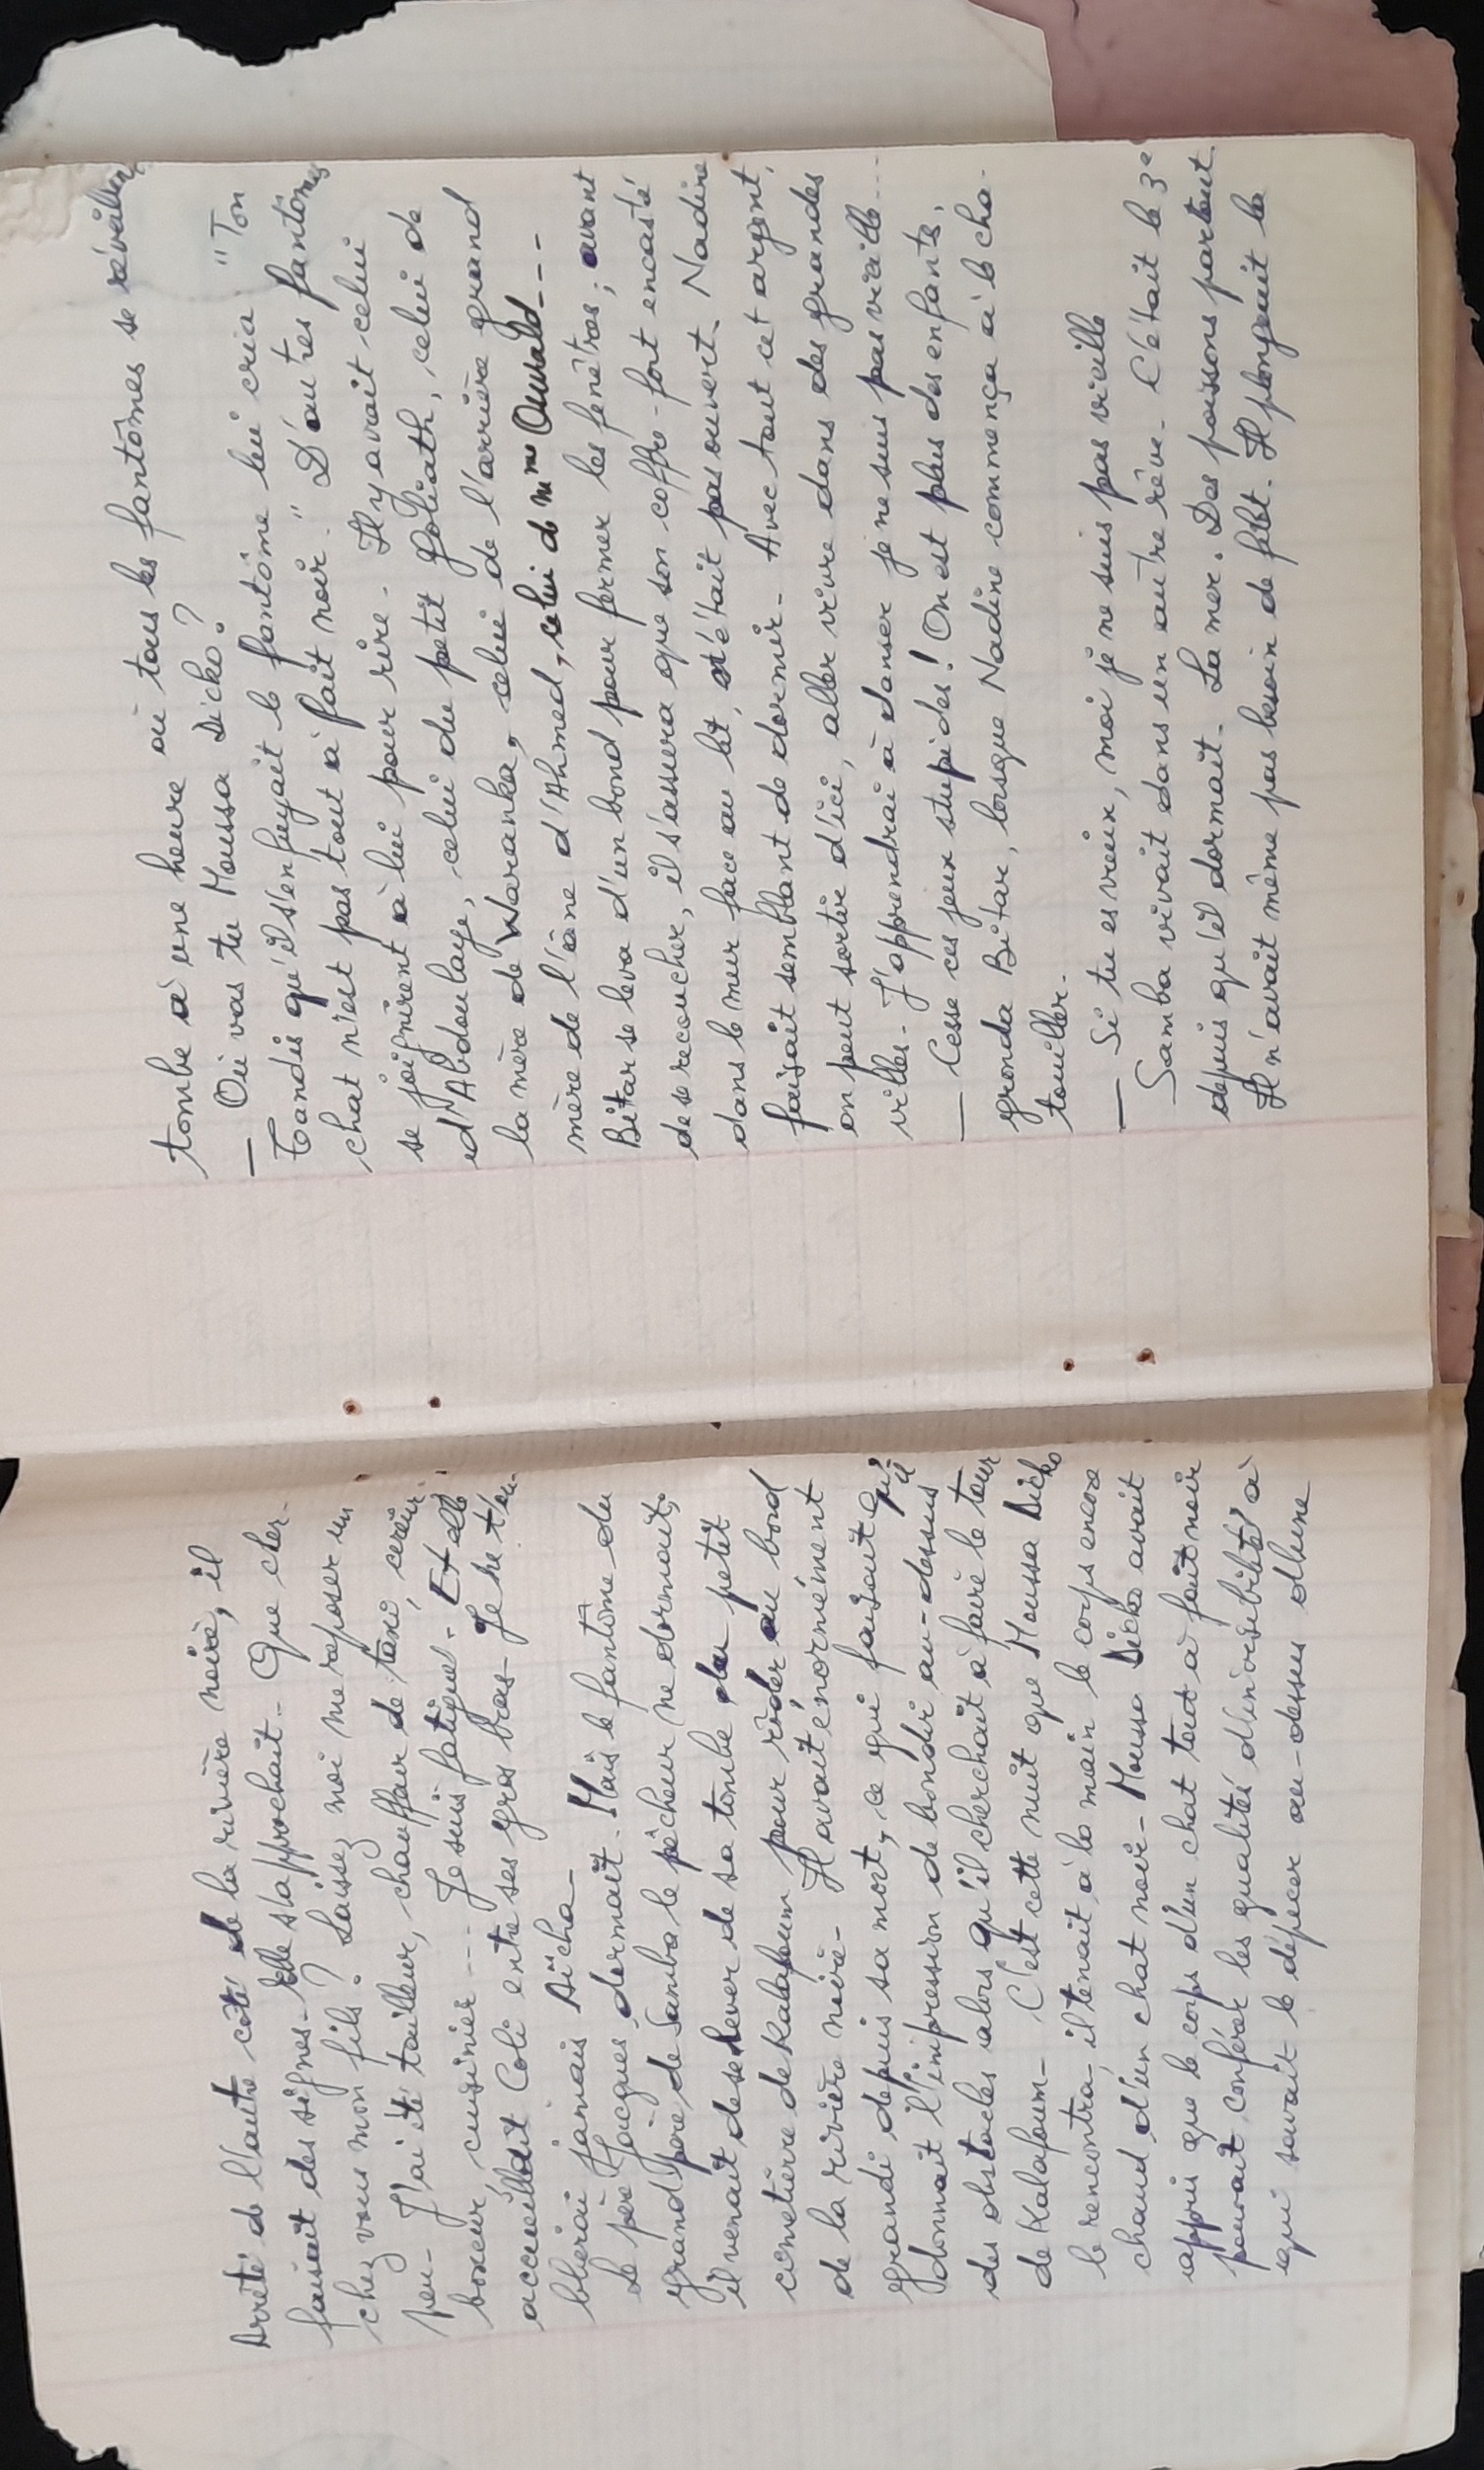 Arrêté de l'autre côté de la rivière noire, il
faisait des signes - Elle s'approchait - Que cher-
chez vous mon fils ? Laissez moi me reposer un
peu - J'ai été tailleur, chauffeur de taxi, cireur,
boxeur, cuisinier --- Je suis fatigué - Et elle
accueillait Coli entre ses gros bras - Je ne t'ou-
blierai jamais Aïcha -
Le père Jacques dormait - Mais le fantôme du
grand père de Samba le pêcheur ne dormait,
il venait de se lever de sa tombe du petit
cimetière de Kalafoum pour rôder au bord
de la rivière noire - Il avait énormément
grandi depuis sa mort, ce qui faisait qu'il
donnait l'impression de bondir au-dessus
des obstacles alors qu'il cherchait à faire le tour
de Kalafoum - C'est cette nuit que Moussa Dicko
le rencontra, il tenait à la main le corps encore
chaud d'un chat noir - Moussa Dicko avait
appris que le corps d'un chat tout à fait noir
pouvait conférer les qualités d'invisibilité à
qui savait le dépecer au-dessus d'une
tombe à une heure où tous les fantômes se réveillent
— Où vas tu Moussa Dicko ?
Tandis qu'il s'enfuyait le fantôme lui cria "Ton
chat n'est pas tout à fait noir." D'autres fantômes
se joignirent à lui pour rire - Il y avait celui
d'Abdoulaye, celui du petit Goliath, celui de
la mère de Waranka, celui de l'arrière grand
mère de l'âne d'Ahmed, celui de Mme Ouwald ---
Bitar se leva d'un bond pour fermer les fenêtres ; avant
de se recoucher, il s'assura que son coffre-fort encastré
dans le mur face au lit, n'était pas ouvert. Nadine
faisait semblant de dormir - Avec tout cet argent,
on peut sortir d'ici, aller vivre dans des grandes
villes - J'apprendrai à danser je ne suis pas vieille ---
— Cesse ces jeux stupides ! On est plus des enfants,
gronda Bitar, lorsque Nadine commença à le cha-
touiller.
— Si tu es vieux, moi je ne suis pas vieille
Samba vivait dans un autre rêve - C'était le 3e
depuis qu'il dormait - La mer. Des poissons partout.
Il n'avait même pas besoin de filet. Il plongeait la